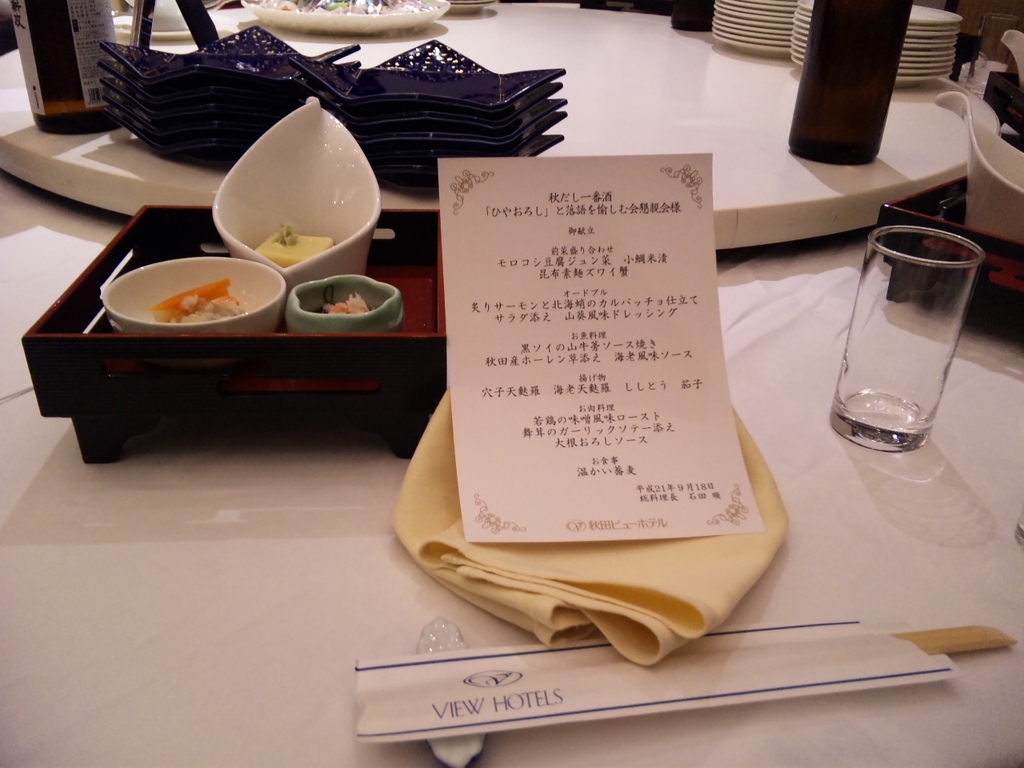 秋だし一番酒
「ひやおろし」と落語を愉しむ会懇親会様
御献立
前菜盛り合わせ
モロコシ豆腐ジュン菜　小鯛米漬
昆布素麺ズワイ蟹
オードブル
炙りサーモンと北海蛸のカルパッチョ仕立て
サラダ添え　山葵風味ドレッシング
お魚料理
黒ソイの山牛蒡ソース焼き
秋田産ホーレン草添え　海老風味ソース
揚げ物
穴子天麩羅　海老天麩羅　ししとう　茄子
お肉料理
若鶏の味噌風味ロースト
舞茸のガーリックソテー添え
大根おろしソース
お食事
温かい蕎麦
平成21年9月18日
総料理長　石田
秋田ビューホテル
VIEW HOTELS